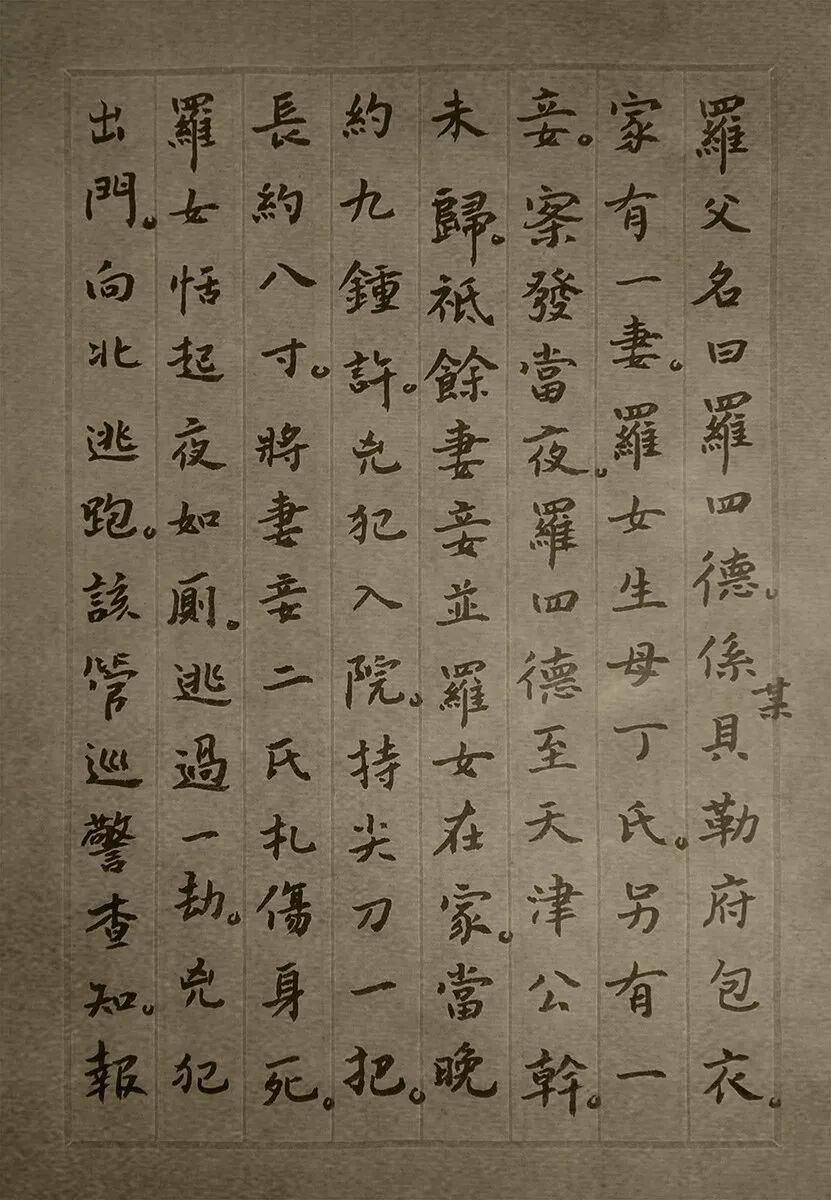 羅父名曰羅四德。係某貝勒府包衣。
家有一妻。羅女生母丁氏。另有一
妾。案發當夜。羅四德至天津公幹。
未歸。祗餘妻妾並羅女在家。當晚
約九鍾許。兇犯入院。持尖刀一把。
長約八寸。將妻妾二氏札傷身死。
羅女恬起夜如厠。逃過一劫。兇犯
出門。向北逃跑。該管巡警查知。報